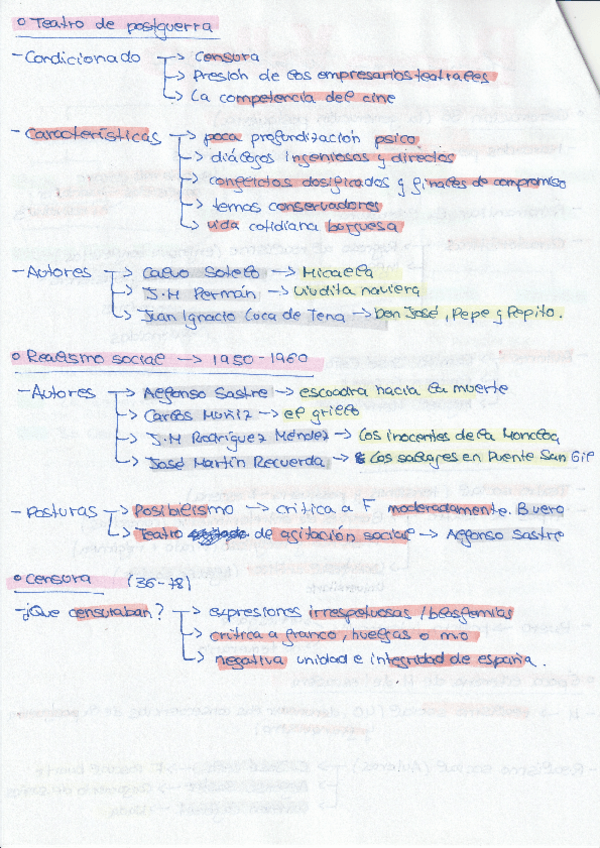 o Teatro de postguerra
- Condicionado → censura
→ Presión de los empresarios teatrales
→ La competencia del cine
- Características → poca profundización psico
→ diálogos ingeniosos y directos
→ conflictos dosificados y finales de compromiso
→ temas conservadores
→ vida cotidiana burguesa
- Autores → Calvo Sotelo → Micaela
→ J.M Permán → viudita naviera
→ Juan Ignacio Luca de Tena → Don José, Pepe y Pepito.
o Realismo social → 1950-1960
- Autores → Alfonso Sastre → escoadra hacia la muerte
→ Carlos Muñiz → el grillo
→ J.M Rodríguez Méndez → Los inocentes de la Moncloa
→ José Martín Recuerda → Los salvajes en Puente San Gil
- Posturas → Posibilismo → critica a F. moderadamente. Buero
→ Teatro de agitación social → Alfonso Sastre
o Censura (36-78)
- ¿Que censuraban? → expresiones irrespetuosas / blasfemias
→ critica a franco, huelgas o mo
→ negativa unidad e integridad de españa.